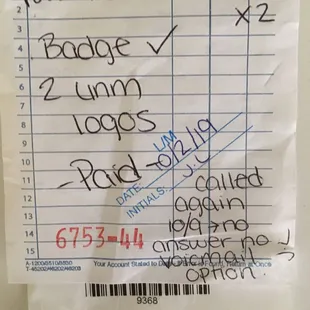 x2
3
4 Badge ✓
5
6 2 unm
7
8 logos
9
10 LM
11 - Paid - 10/2/19
12 DATE J.L
INITIALS: called
13 again
14 10/9 → no
6753-44 answer no
15 voicemail
A-1200/5510/B830 Your Account Stated to Date
T-46202/46202/46203 option.
9368